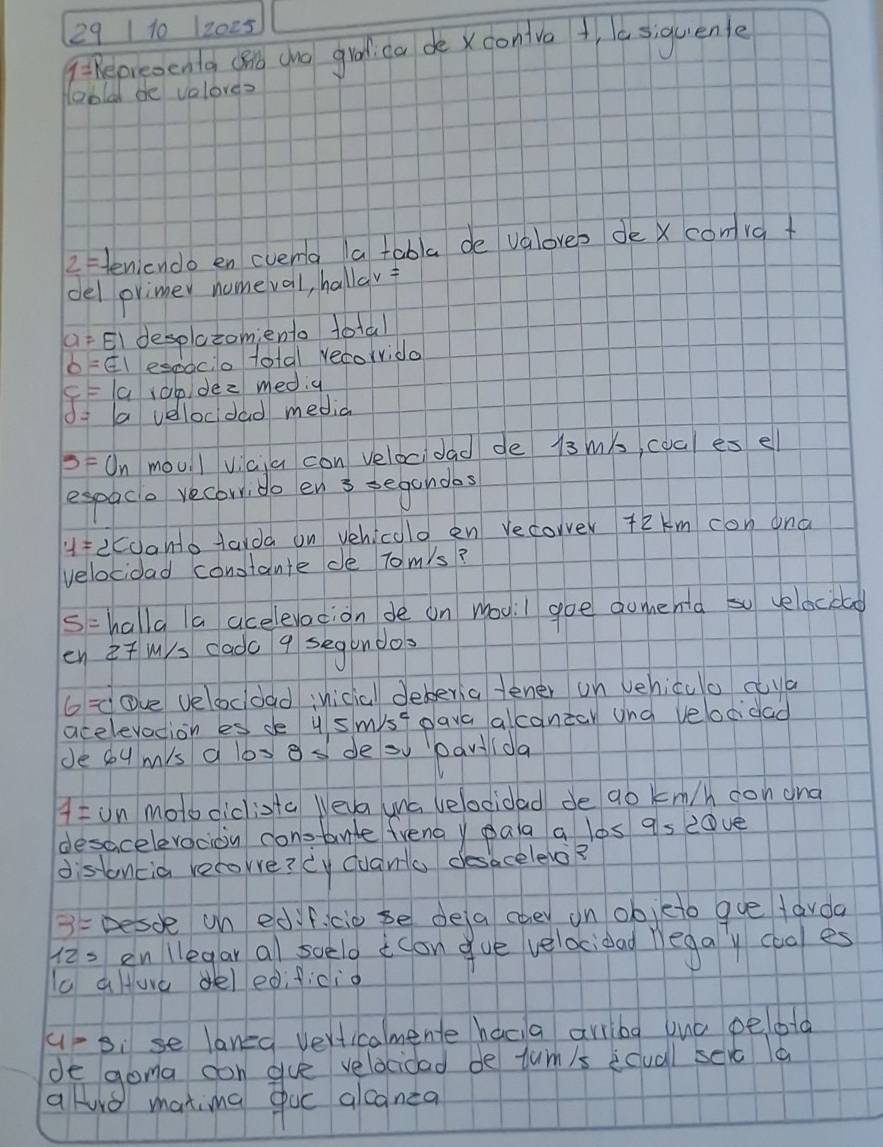 29 | 10 | 2025
1= Representa una grafica de x contra t, la siguiente
tabla de valores
2= teniendo en cuenta la tabla de valores de x contra t
del primer numeral, hallar =
a= El desplazamiento total
b= El espacio total recorrido
c= la rapidez media
d= la velocidad media
3= Un movil viaja con velocidad de 13 m/s, cual es el
espacio recorrido en 3 segundos
4= ¿Cuanto tarda un vehiculo en recorrer 72 km con una
velocidad constante de 10 m/s?
5= halla la aceleracion de un movil que aumenta su velocidad
en 27 m/s cada 9 segundos
6= ¿Que velocidad inicial deberia tener un vehiculo cuya
aceleracion es de 4,5 m/s² para alcanzar una velocidad
de 64 m/s a los 8 s de su partida
7= un motociclista lleva una velocidad de 90 km/h con una
desaceleracion constante frena y para a los 9s ¿Que
distancia recorre? ¿y cuanto desacelero?
8= Desde un edificio se deja caer un objeto que tarda
12 s en llegar al suelo ¿con que velocidad llega y cual es
la altura del edificio
9= si se lanza verticalmente hacia arriba una pelota
de goma con que velocidad de m/s ¿cual sera la
altura maxima que alcanza